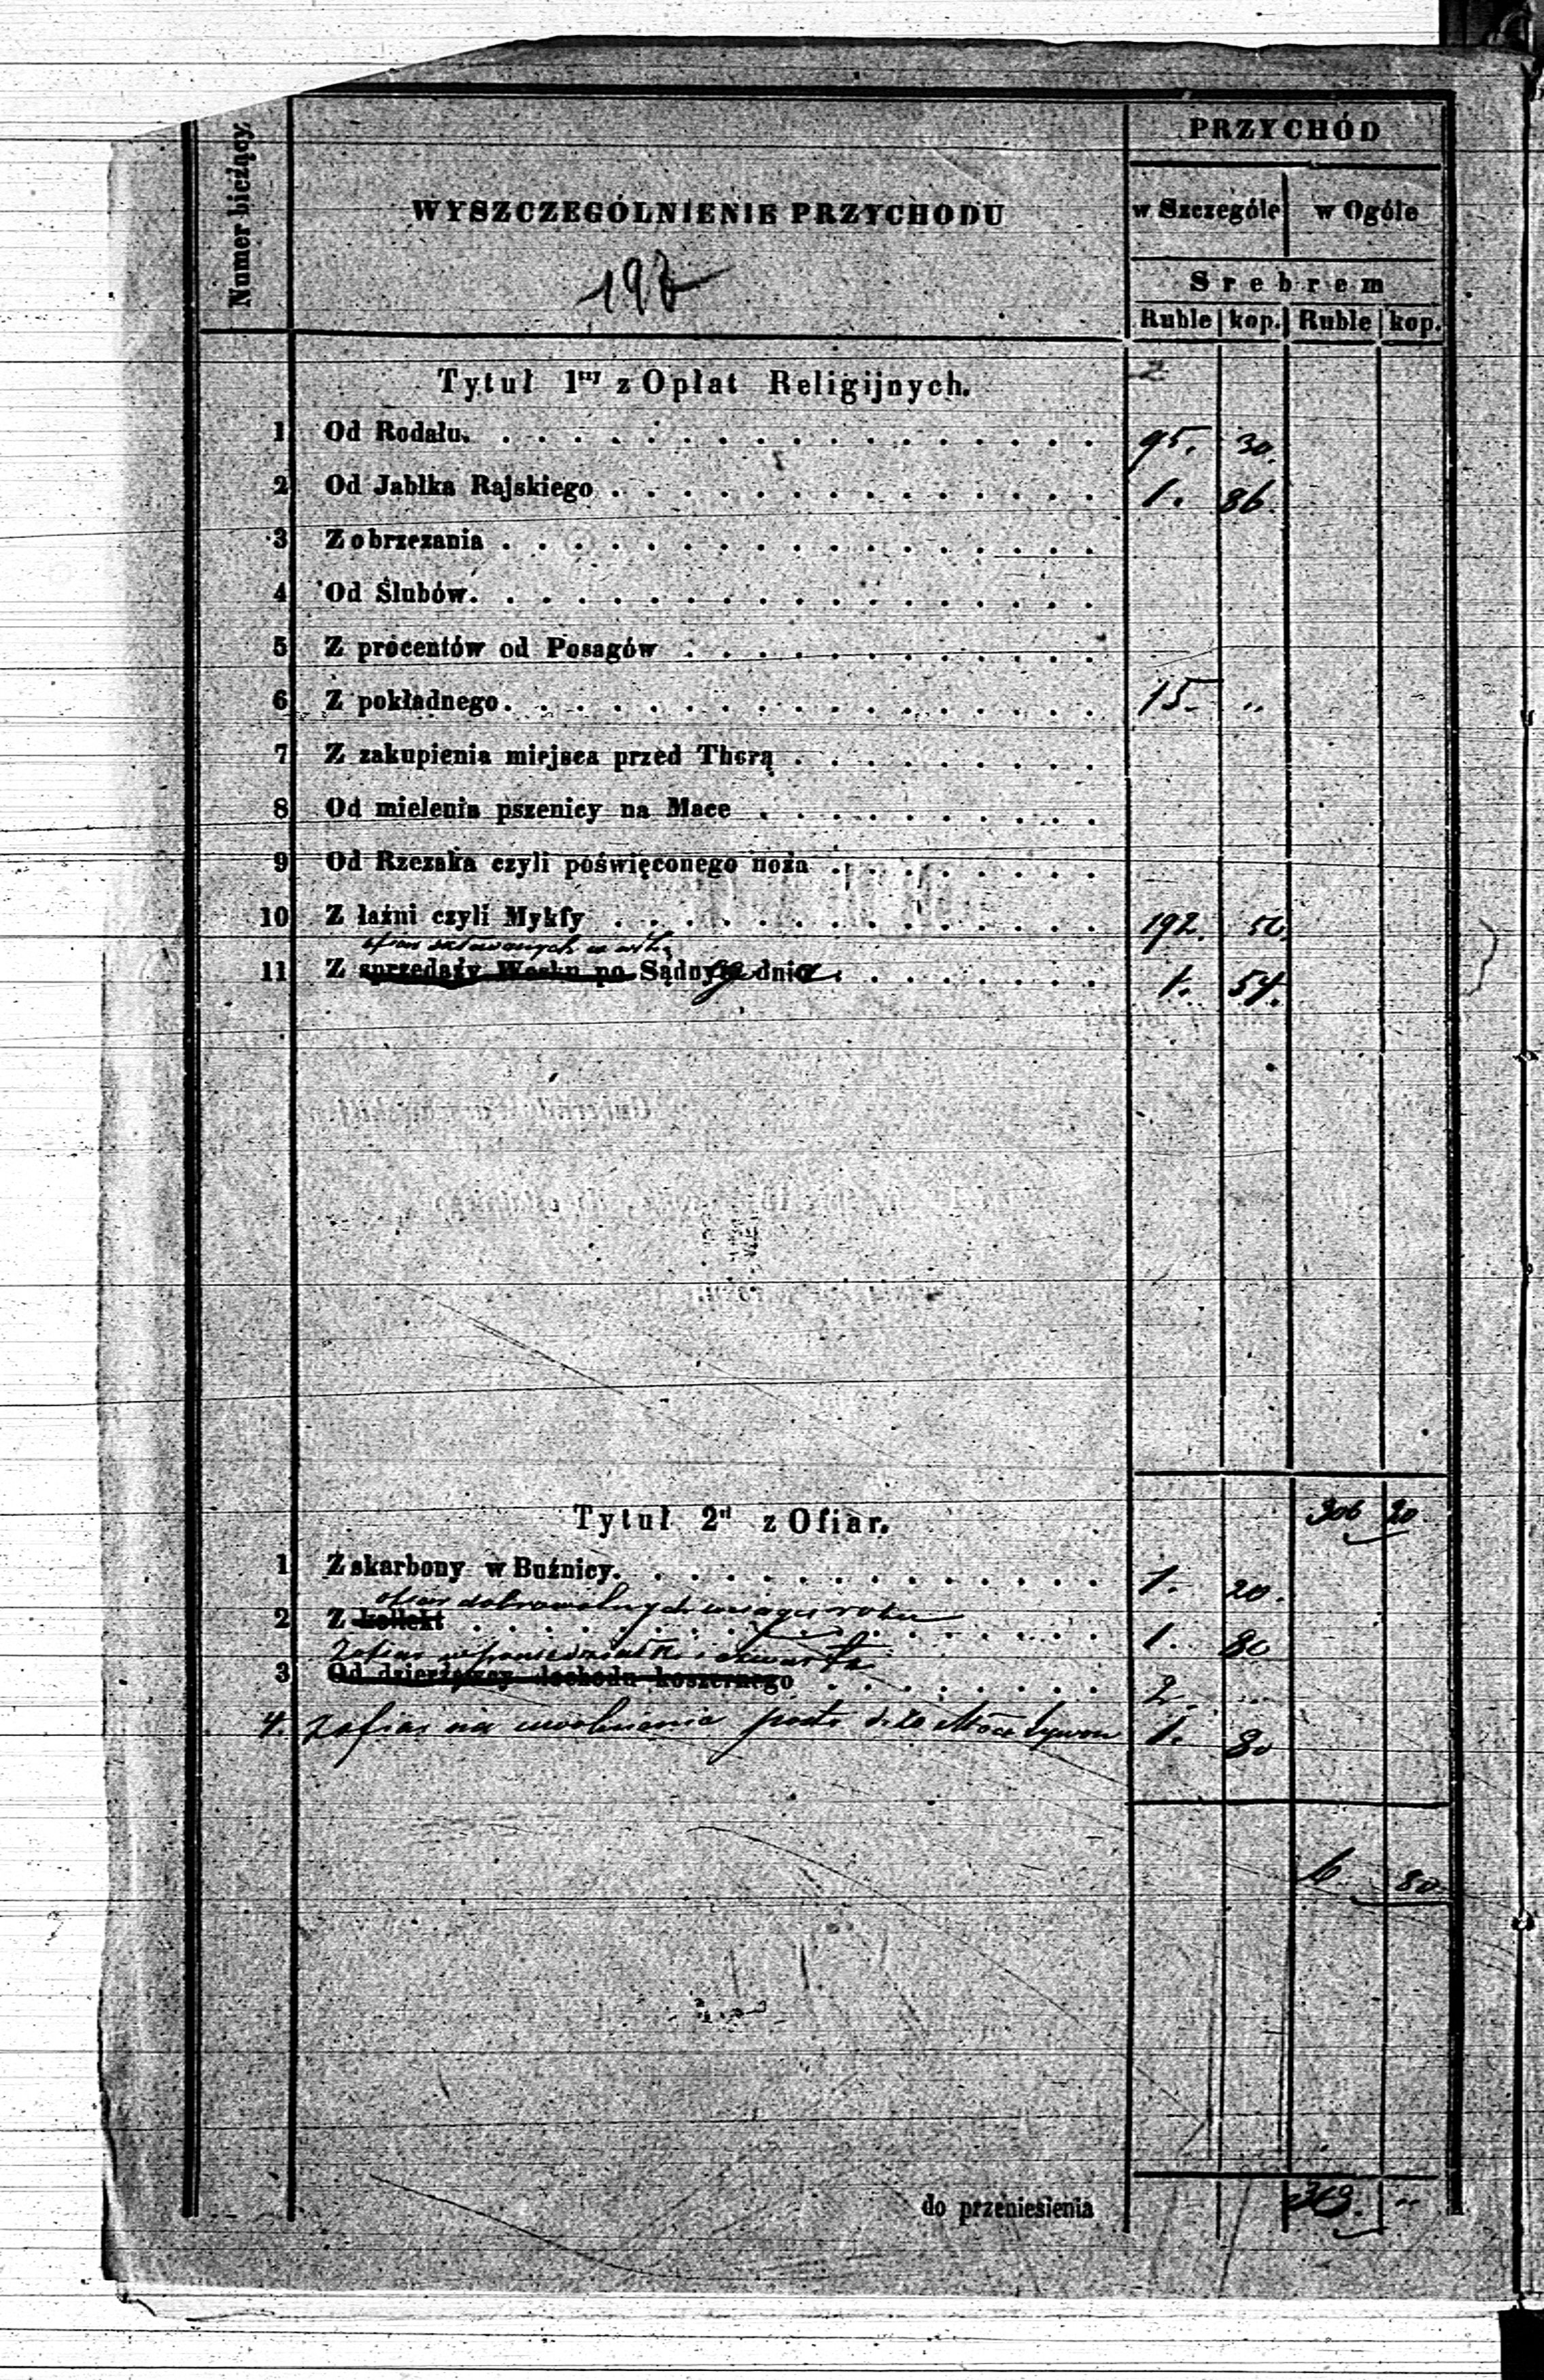 Numer bieżący.
WYSZCZEGÓLNIENIE PRZYCHODU
PRZYCHÓD
w Szczególe w Ogóle
Srebrem
Ruble kop. Ruble kop.
Tytuł 1szy z Opłat Religijnych. 2
1 Od Rodału. 95. 30.
2 Od Jabłka Rajskiego 1. 86.
3 Z obrzezania
4 Od Ślubów.
5 Z procentów od Posagów
6 Z pokładnego. 15 "
7 Z zakupienia miejsca przed Thorą
8 Od mielenia pszenicy na Mace
9 Od Rzezaka czyli poświęconego noża
10 Z łaźni czyli Mykfy 192. 50.
ofiar
11 Z sprzedaży Wosku po Sądnym dniu 1. 54.
306 20
Tytuł 2gi z Ofiar.
1 Z skarbony w Buźnicy. 1. 20.
ofiar dobrowolnych w ciągu roku
2 Z kollekt 1. 80
Z ofiar w poniedziałki i czwartki
3 Od dzierżawcy dochodu koszernego 2. "
4. Z ofiar na uwolnienie 1. 80
6 80
do przeniesienia 313. "